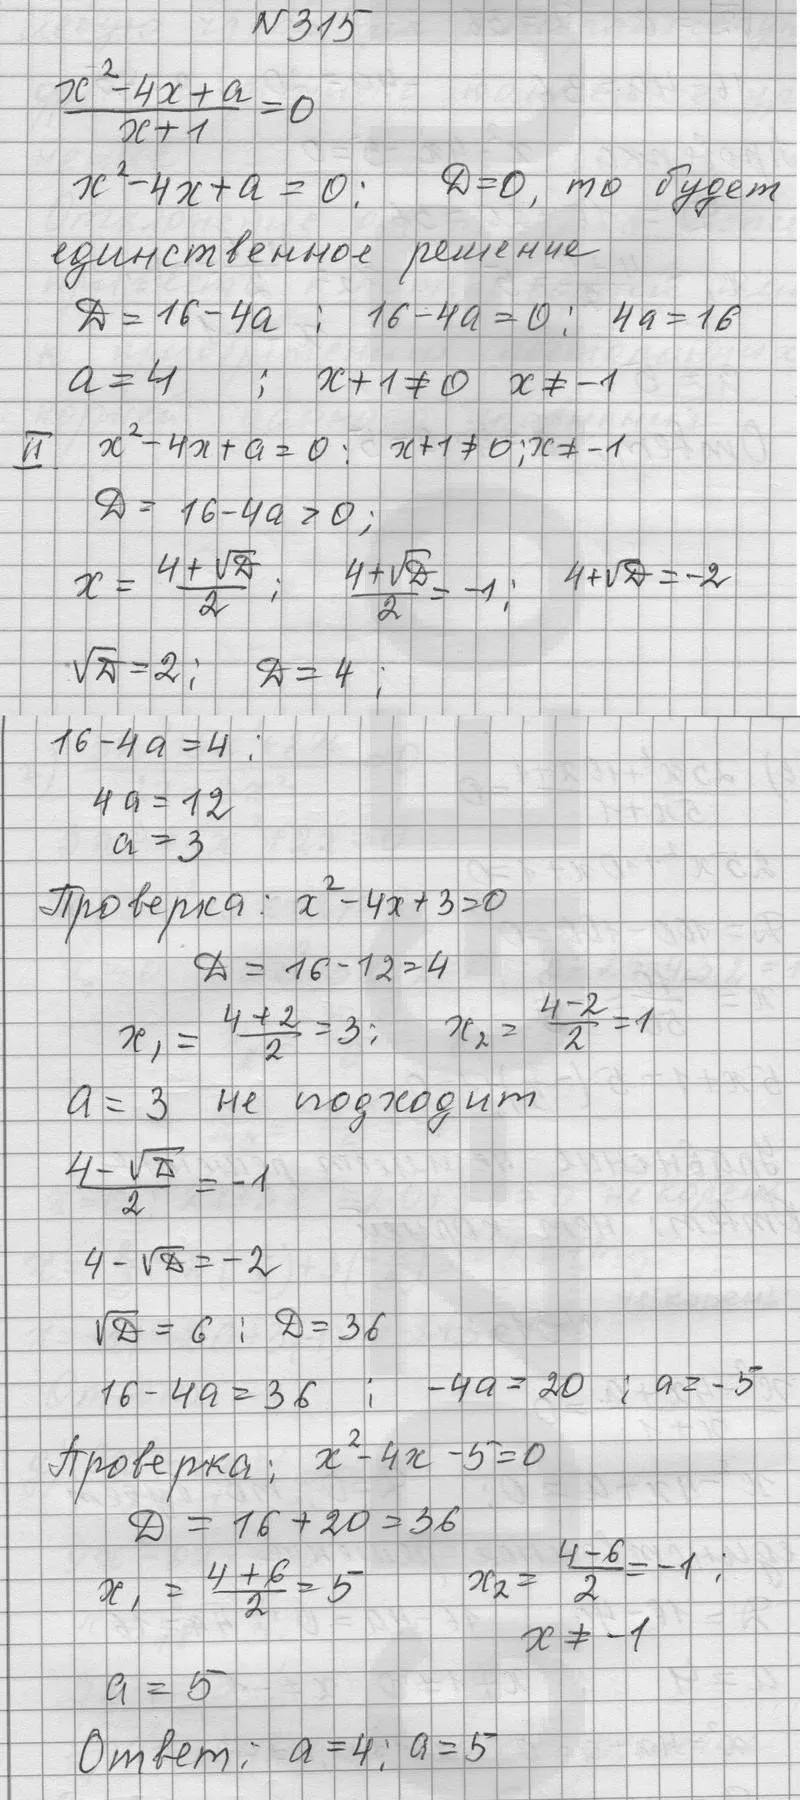 N 315
(x² - 4x + a)/(x + 1) = 0
x² - 4x + a = 0; D = 0, то будет
единственное решение
D = 16 - 4a ; 16 - 4a = 0; 4a = 16
a = 4 ; x + 1 ≠ 0 x ≠ -1
II x² - 4x + a = 0; x + 1 ≠ 0; x ≠ -1
D = 16 - 4a > 0;
x = (4 + √D)/2; (4 + √D)/2 = -1; 4 + √D = -2
√D = 2; D = 4;
16 - 4a = 4;
4a = 12
a = 3
Проверка: x² - 4x + 3 = 0
D = 16 - 12 = 4
x₁ = (4 + 2)/2 = 3; x₂ = (4 - 2)/2 = 1
a = 3 не подходит
(4 - √D)/2 = -1
4 - √D = -2
√D = 6; D = 36
16 - 4a = 36 ; -4a = 20 ; a = -5
Проверка; x² - 4x - 5 = 0
D = 16 + 20 = 36
x₁ = (4 + 6)/2 = 5 x₂ = (4 - 6)/2 = -1;
x ≠ -1
a = 5
Ответ: a = 4; a = 5